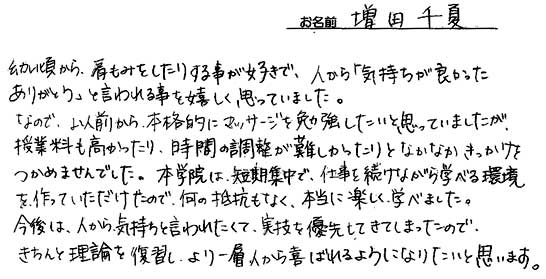 お名前 増田千夏
幼い頃から、肩もみをしたりする事が好きで、人から「気持ちが良かった
ありがとう」と言われる事を嬉しく思っていました。
なので、以前から、本格的にマッサージを勉強したいと思っていましたが、
授業料も高かったり、時間の調整が難しかったりとなかなかきっかけを
つかめませんでした。本学院は、短期集中で、仕事を続けながら学べる環境
を、作っていただけたので、何の抵抗もなく、本当に楽しく学べました。
今後は、人から気持ちと言われたくて、実技を優先してきてしまったので、
きちんと理論を復習し、より一層人から喜ばれるようになりたいと思います。